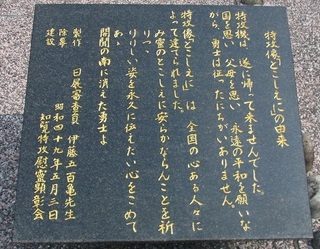 特攻像「とこしえに」の由来
特攻機は、遂に帰って来ませんでした。
国を思い、父母を思い、永遠の平和を願いな
がら、勇士は征ったにちがいありません。
特攻像「とこしえに」は、全国の心ある人々に
よって建てられました。
み霊のとこしえに安らかならんことを祈
りつゝ
りりしい姿を永久に伝えたい心をこめて
あゝ
開聞の南に消えた勇士よ
製作 日展審査員 伊藤五百亀先生
除幕 昭和四十九年五月三日
建設 知覧特攻慰霊顕彰会